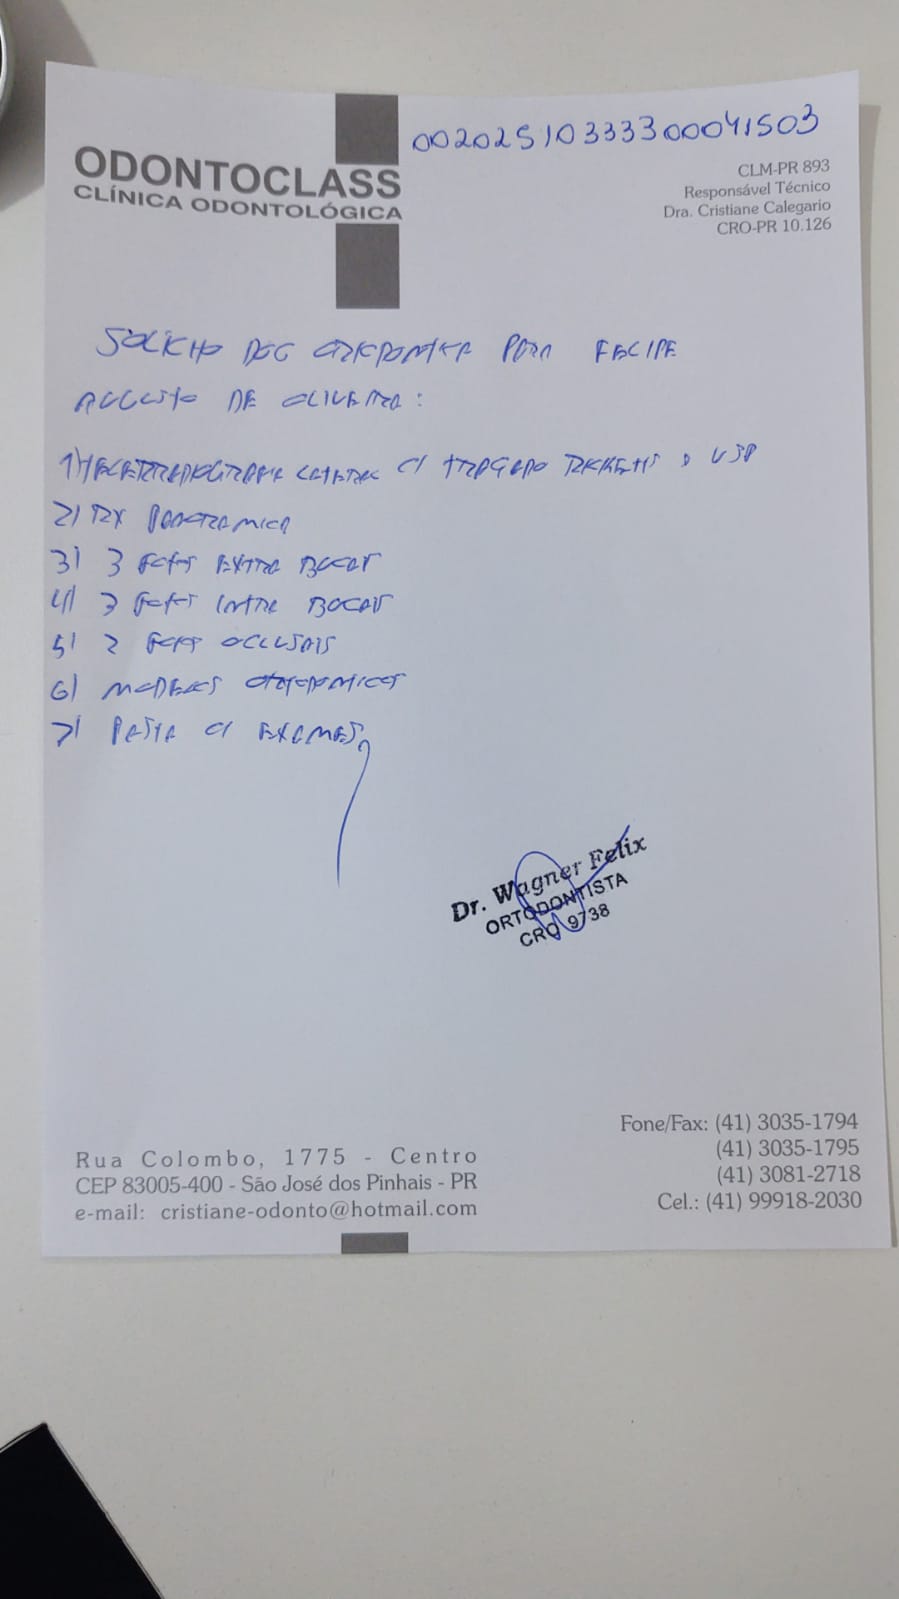 00202510333300041503
ODONTOCLASS
CLÍNICA ODONTOLÓGICA
CLM-PR 893
Responsável Técnico
Dra. Cristiane Calegario
CRO-PR 10.126
SOLICITO DOC ORTODONTICA PARA FELIPE
AUGUSTO DE OLIVEIRA:
1) TELERRADIOGRAFIA LATERAL C/ TRAÇADO E USP
2) RX PANORAMICA
3) 3 FOTOS EXTRA BUCAIS
4) 3 FOTOS INTRA BUCAIS
5) 2 FOTOS OCLUSAIS
6) MODELOS ORTODONTICOS
7) PASTA C/ EXAMES
Dr. Wagner Felix
ORTODONTISTA
CRO 9738
Rua Colombo, 1775 - Centro
CEP 83005-400 - São José dos Pinhais - PR
e-mail: cristiane-odonto@hotmail.com
Fone/Fax: (41) 3035-1794
(41) 3035-1795
(41) 3081-2718
Cel.: (41) 99918-2030